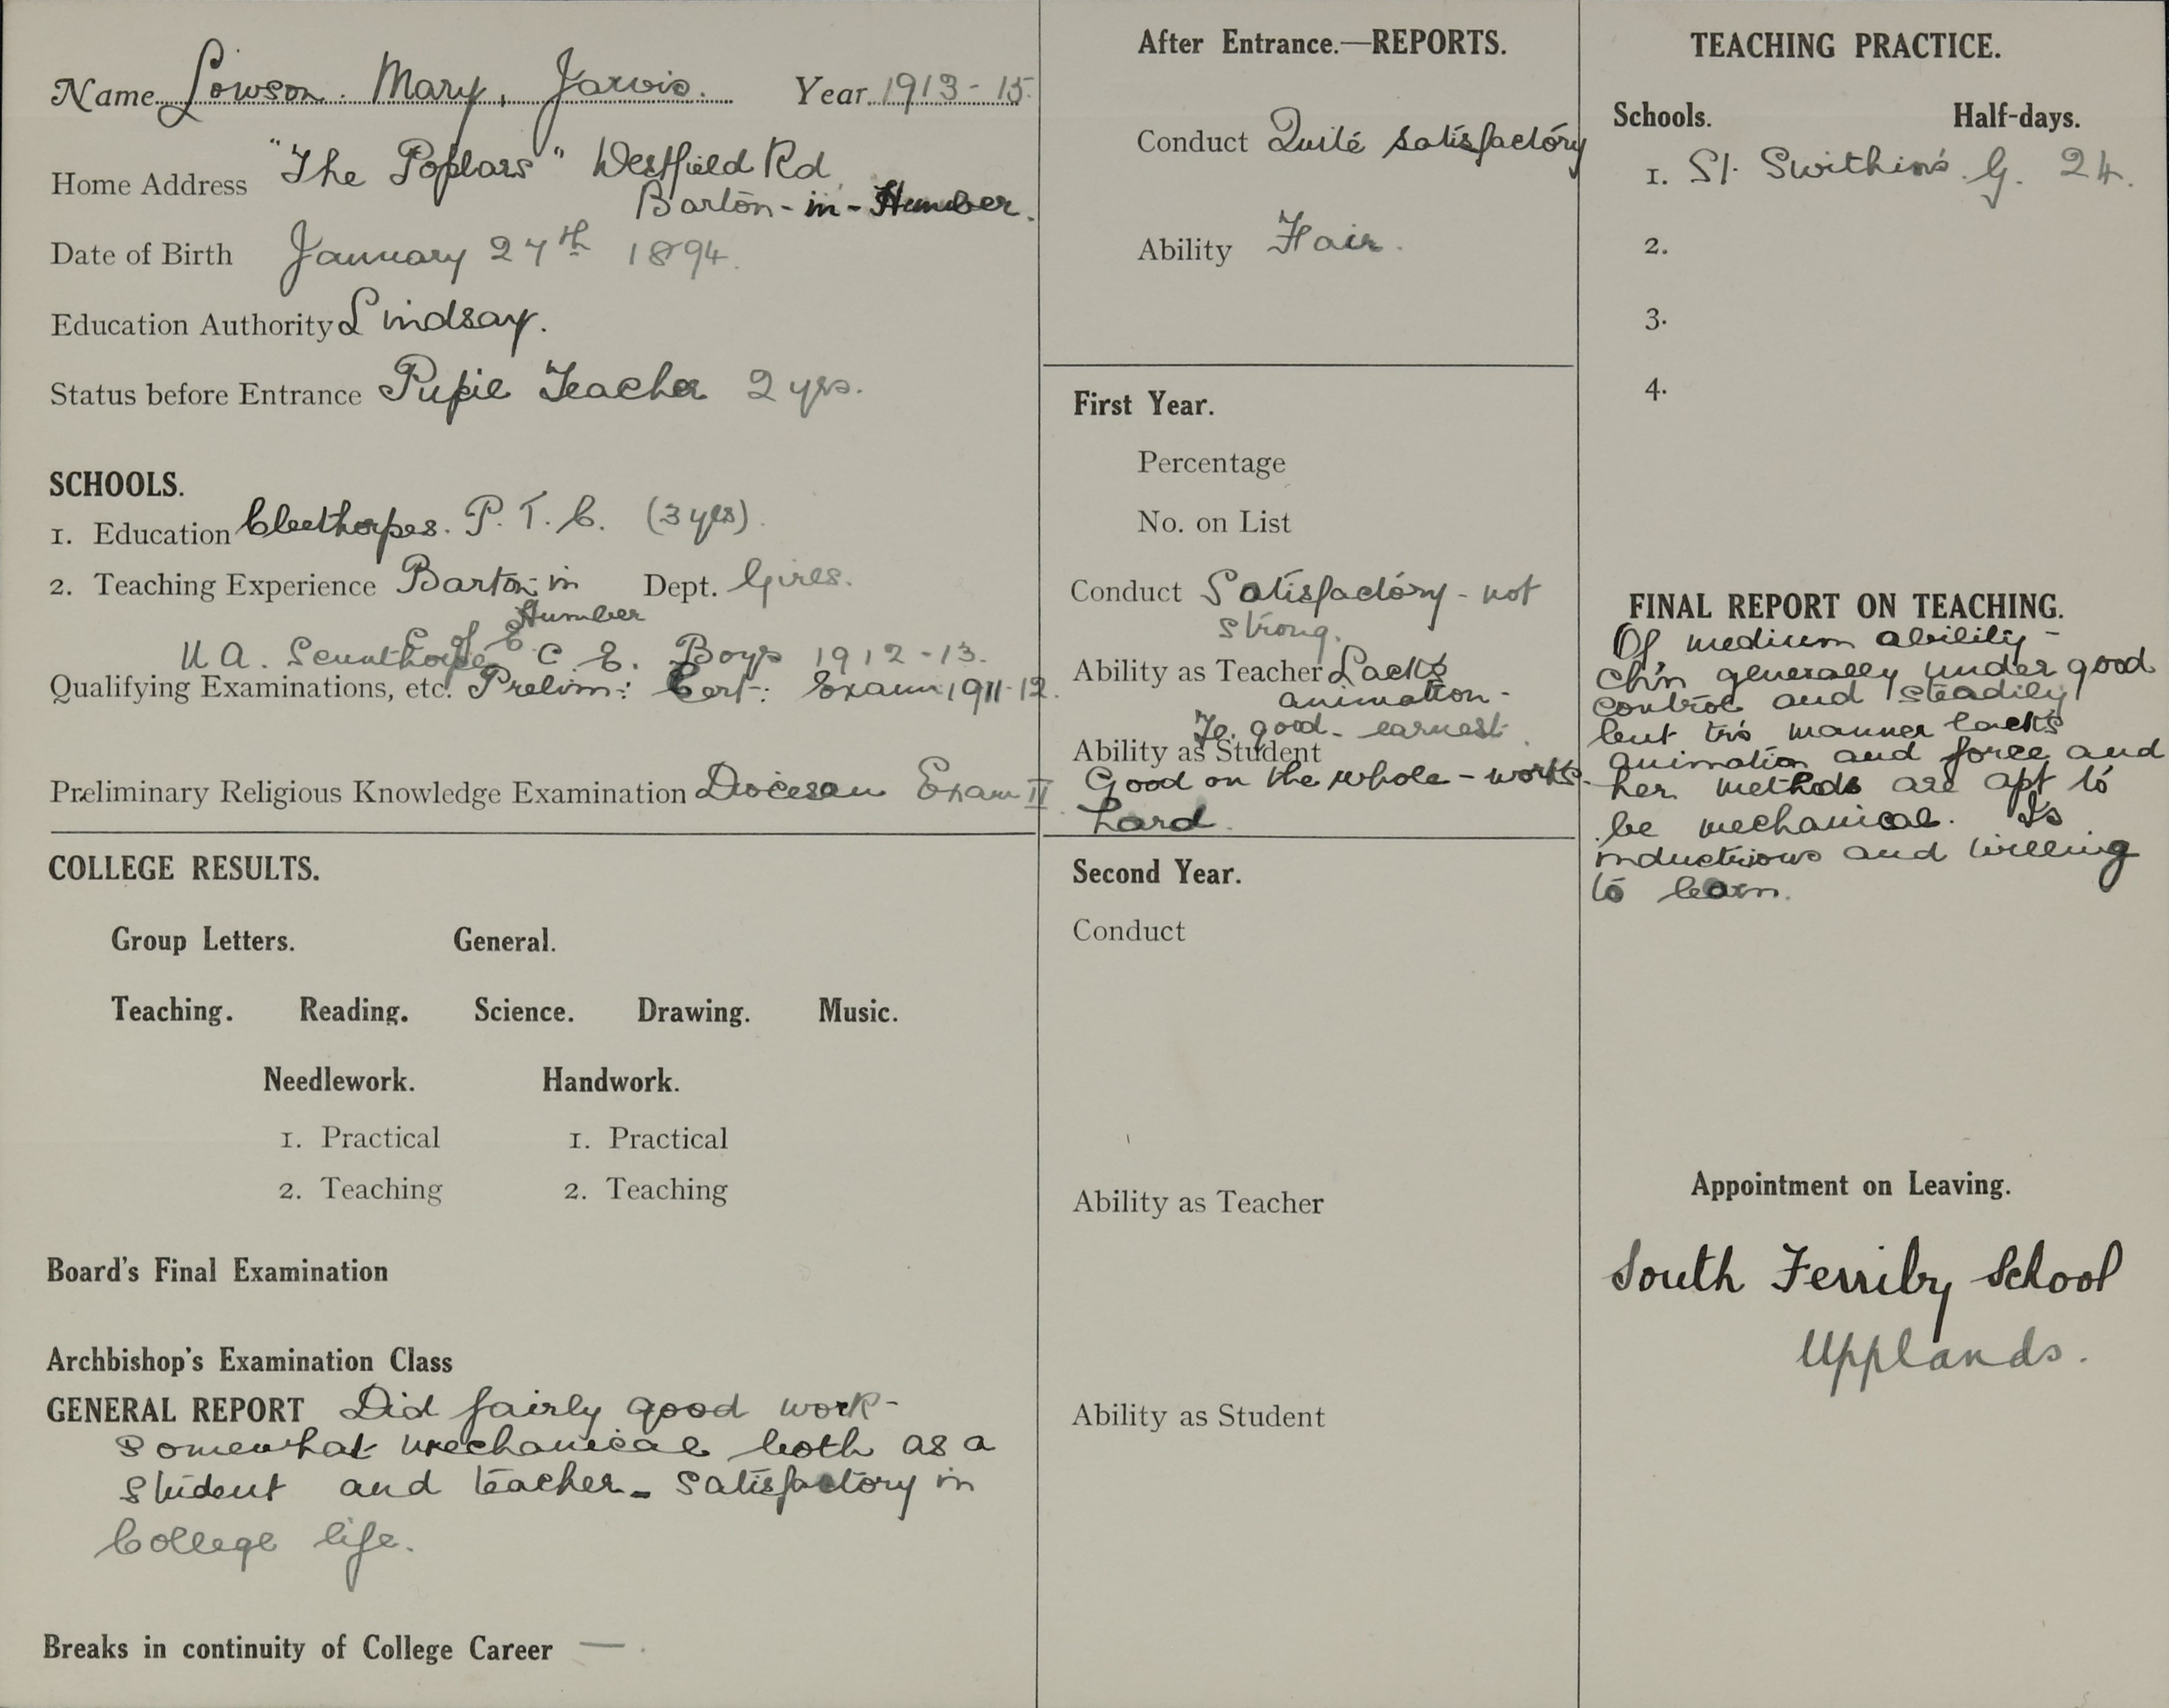 Name Lowson. Mary, Jarvis. Year 1913-15.
Home Address "The Poplars" Westfield Rd
Barton-in-Humber.
Date of Birth January 27th 1894.
Education Authority Lindsay.
Status before Entrance Pupil Teacher 2 yrs.
SCHOOLS.
1. Education Cleethorpes. P. T. C. (3 yrs).
2. Teaching Experience Barton-in Dept. Girls.
Humber
U A. Scunthorpe C of E. C. E. Boys 1912-13.
Qualifying Examinations, etc. Prelim: Cert: Exam 1911-12.
Preliminary Religious Knowledge Examination Diocesan Exam II
COLLEGE RESULTS.
Group Letters. General.
Teaching. Reading. Science. Drawing. Music.
Needlework. Handwork.
1. Practical 1. Practical
2. Teaching 2. Teaching
Board's Final Examination
Archbishop's Examination Class
GENERAL REPORT Did fairly good work-
somewhat mechanical both as a
student and teacher - satisfactory in
College life.
Breaks in continuity of College Career — .
After Entrance.—REPORTS.
Conduct Quite satisfactory
Ability Fair.
First Year.
Percentage
No. on List
Conduct Satisfactory - not
strong.
Ability as Teacher Lacks
animation -
good - earnest.
Ability as Student
Good on the whole - works
hard.
Second Year.
Conduct
Ability as Teacher
Ability as Student
TEACHING PRACTICE.
Schools. Half-days.
1. St. Swithin's. G. 24.
2.
3.
4.
FINAL REPORT ON TEACHING.
Of medium ability -
Ch'n generally under good
control and steadily
but manner lacks
animation and force and
her methods are apt to
be mechanical. Is
industrious and willing
to learn.
Appointment on Leaving.
South Ferriby School
Upplands.